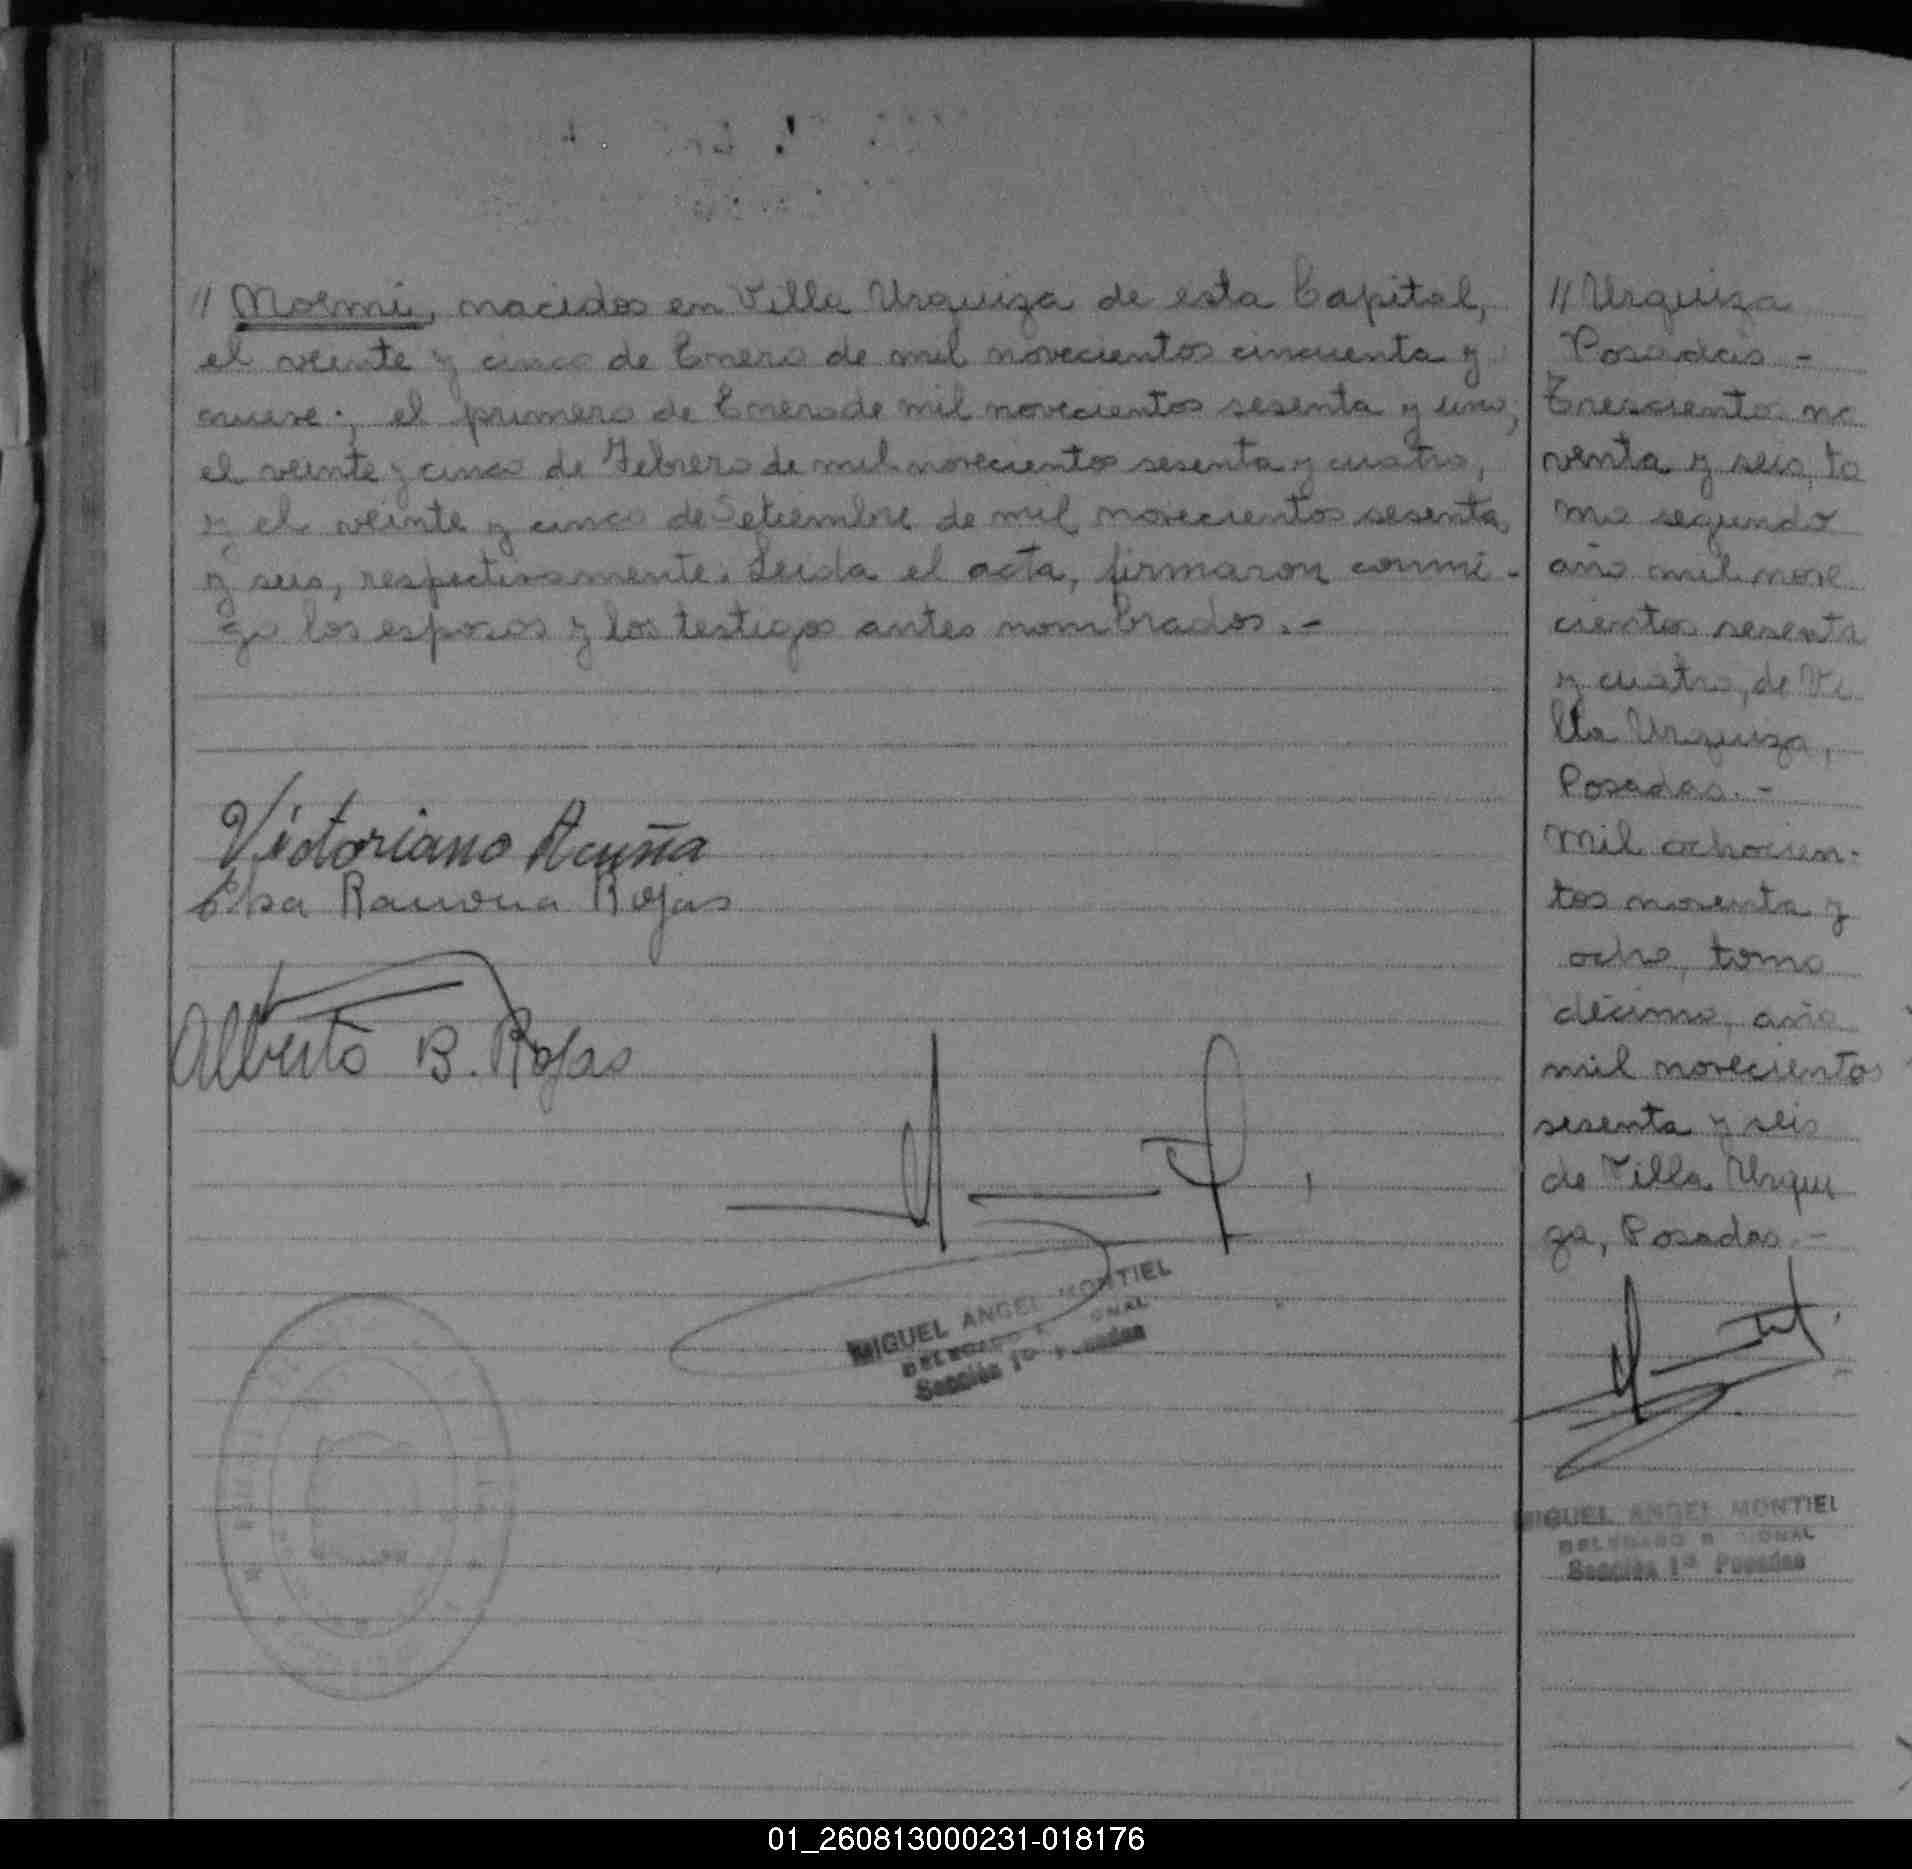 // Noemi, nacidos en Villa Urquiza de esta Capital,
el veinte y cinco de Enero de mil novecientos cincuenta y
nueve; el primero de Enero de mil novecientos sesenta y uno;
el veinte y cinco de Febrero de mil novecientos sesenta y cuatro,
y el veinte y cinco de Setiembre de mil novecientos sesenta
y seis, respectivamente. Leida el acta, firmaron conmi-
go los esposos y los testigos antes nombrados.-
Victoriano Acuña
Elsa Ramona Rojas
Alberto B. Rojas
MIGUEL ANGEL MONTIEL
DELEGADO
Sección 1ª Posadas
// Urquiza
Posadas -
Trescientos no
venta y seis, to
mo segundo
año mil nove
cientos sesenta
y cuatro, de Vi
lla Urquiza,
Posadas.-
Mil ochocien-
tos noventa y
ocho, tomo
décimo, año
mil novecientos
sesenta y seis
de Villa Urqui
za, Posadas.-
MIGUEL ANGEL MONTIEL
DELEGADO
Sección 1ª Posadas
01_260813000231-018176